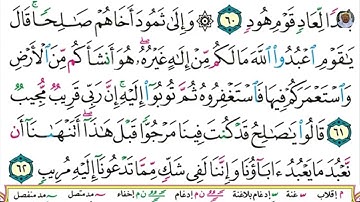 بُعْدًا لِّعَادٍ قَوْمِ هُودٍ ٦٠ ۞ وَإِلَىٰ ثَمُودَ أَخَاهُمْ صَـٰلِحًا ۚ قَالَ
يَـٰقَوْمِ ٱعْبُدُوا۟ ٱللَّهَ مَا لَكُم مِّنْ إِلَـٰهٍ غَيْرُهُۥ ۖ هُوَ أَنشَأَكُم مِّنَ ٱلْأَرْضِ
وَٱسْتَعْمَرَكُمْ فِيهَا فَٱسْتَغْفِرُوهُ ثُمَّ تُوبُوٓا۟ إِلَيْهِ ۚ إِنَّ رَبِّى قَرِيبٌ مُّجِيبٌ
٦١ قَالُوا۟ يَـٰصَـٰلِحُ قَدْ كُنتَ فِينَا مَرْجُوًّا قَبْلَ هَـٰذَآ ۖ أَتَنْهَىٰنَآ أَن
نَّعْبُدَ مَا يَعْبُدُ ءَابَآؤُنَا وَإِنَّنَا لَفِى شَكٍّ مِّمَّا تَدْعُونَآ إِلَيْهِ مُرِيبٍ ٦٢
م إقلاب غنة إدغام بلاغنة إدغام إخفاء مد متصل مد منفصل